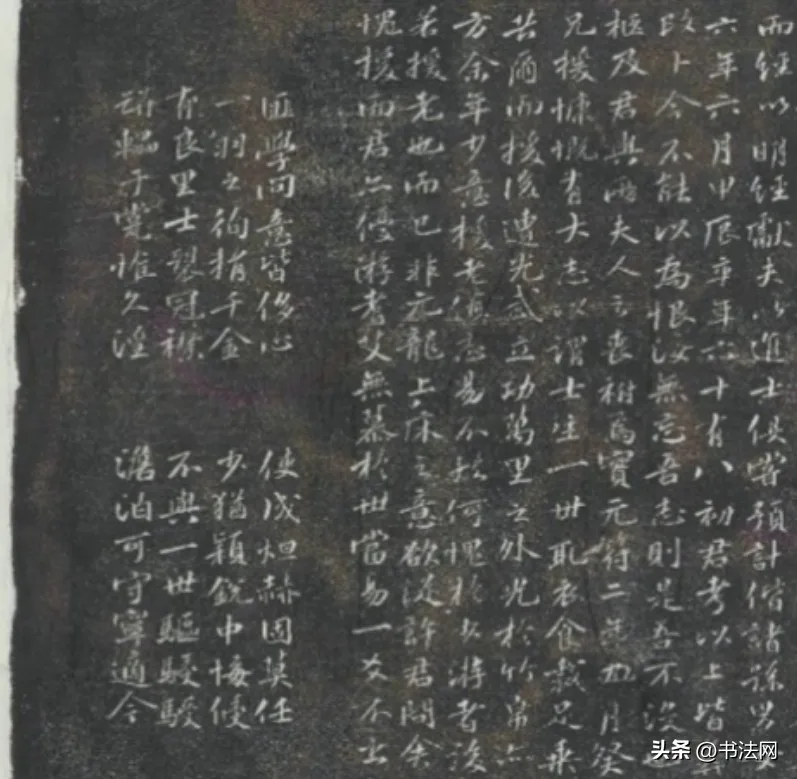 而經以明經獻夫以進士俱嘗預計偕諸孫男女
六年六月甲辰卒年六十有八初君考以上皆
卜今不能以為恨汝無忘吾志則是吾不沒
柩及君與兩夫人之喪祔焉實元符二年四月癸
兄援慷慨有大志以謂士生一世取衣食裁足乘
共爾而援後遭光武立功萬里之外光於竹帛亦
方余年少意援老適志易不何愧於少游者後
若援老也而已非元龍上床之意欲從許君問余
愧援而君亦優游耆艾無慕於世當易一爻不出
匪學問意皆侈心 使成烜赫固莫任
一羽之徇捐千金 少猶穎銳中悔侵
有良里士翳冠襟 不與一世驅駸駸
于惟久淫 澹泊可守寧適今
头条 @书法网